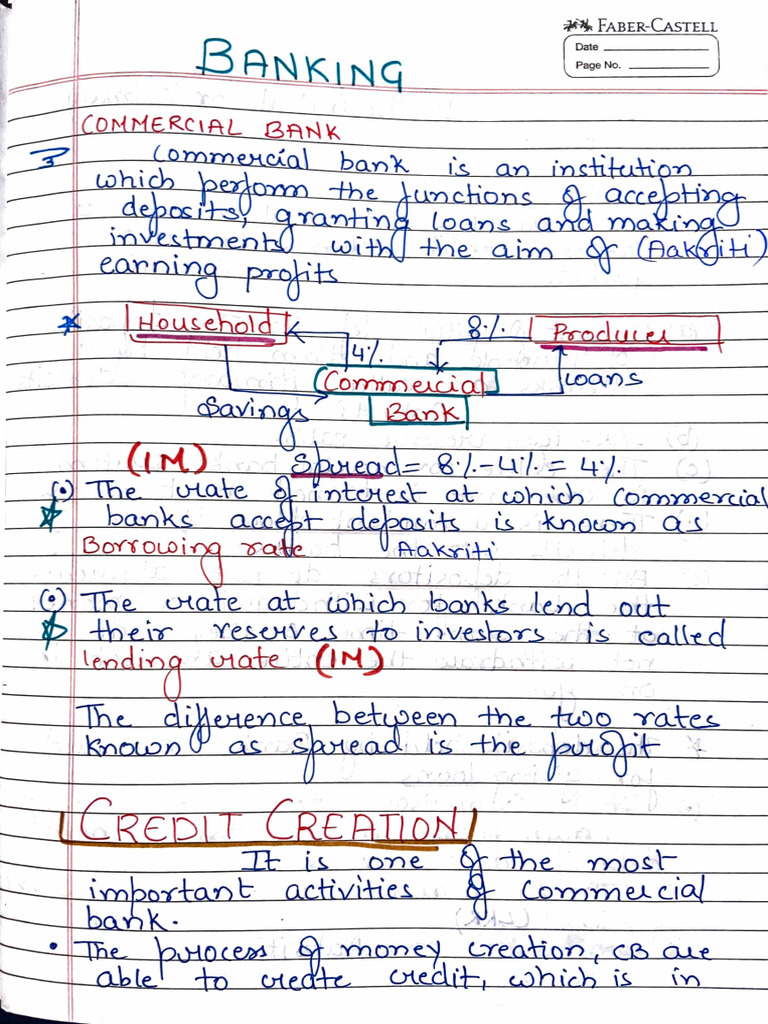 FABER-CASTELL
Date
Page No.
BANKING
COMMERCIAL BANK
Commercial bank is an institution
which perform the functions of accepting
deposits, granting loans and making
investments with the aim of (Aakriti)
earning profits
Household 8% Producer
4%
Commercial Loans
Savings Bank
(1M) Spread = 8% - 4% = 4%
The rate of interest at which commercial
banks accept deposits is known as
Borrowing rate Aakriti
The rate at which banks lend out
their reserves to investors is called
lending rate (1M)
The difference between the two rates
known as spread is the profit
CREDIT CREATION
It is one of the most
important activities of commercial
bank.
• The process of money creation, CB are
able to create credit, which is in